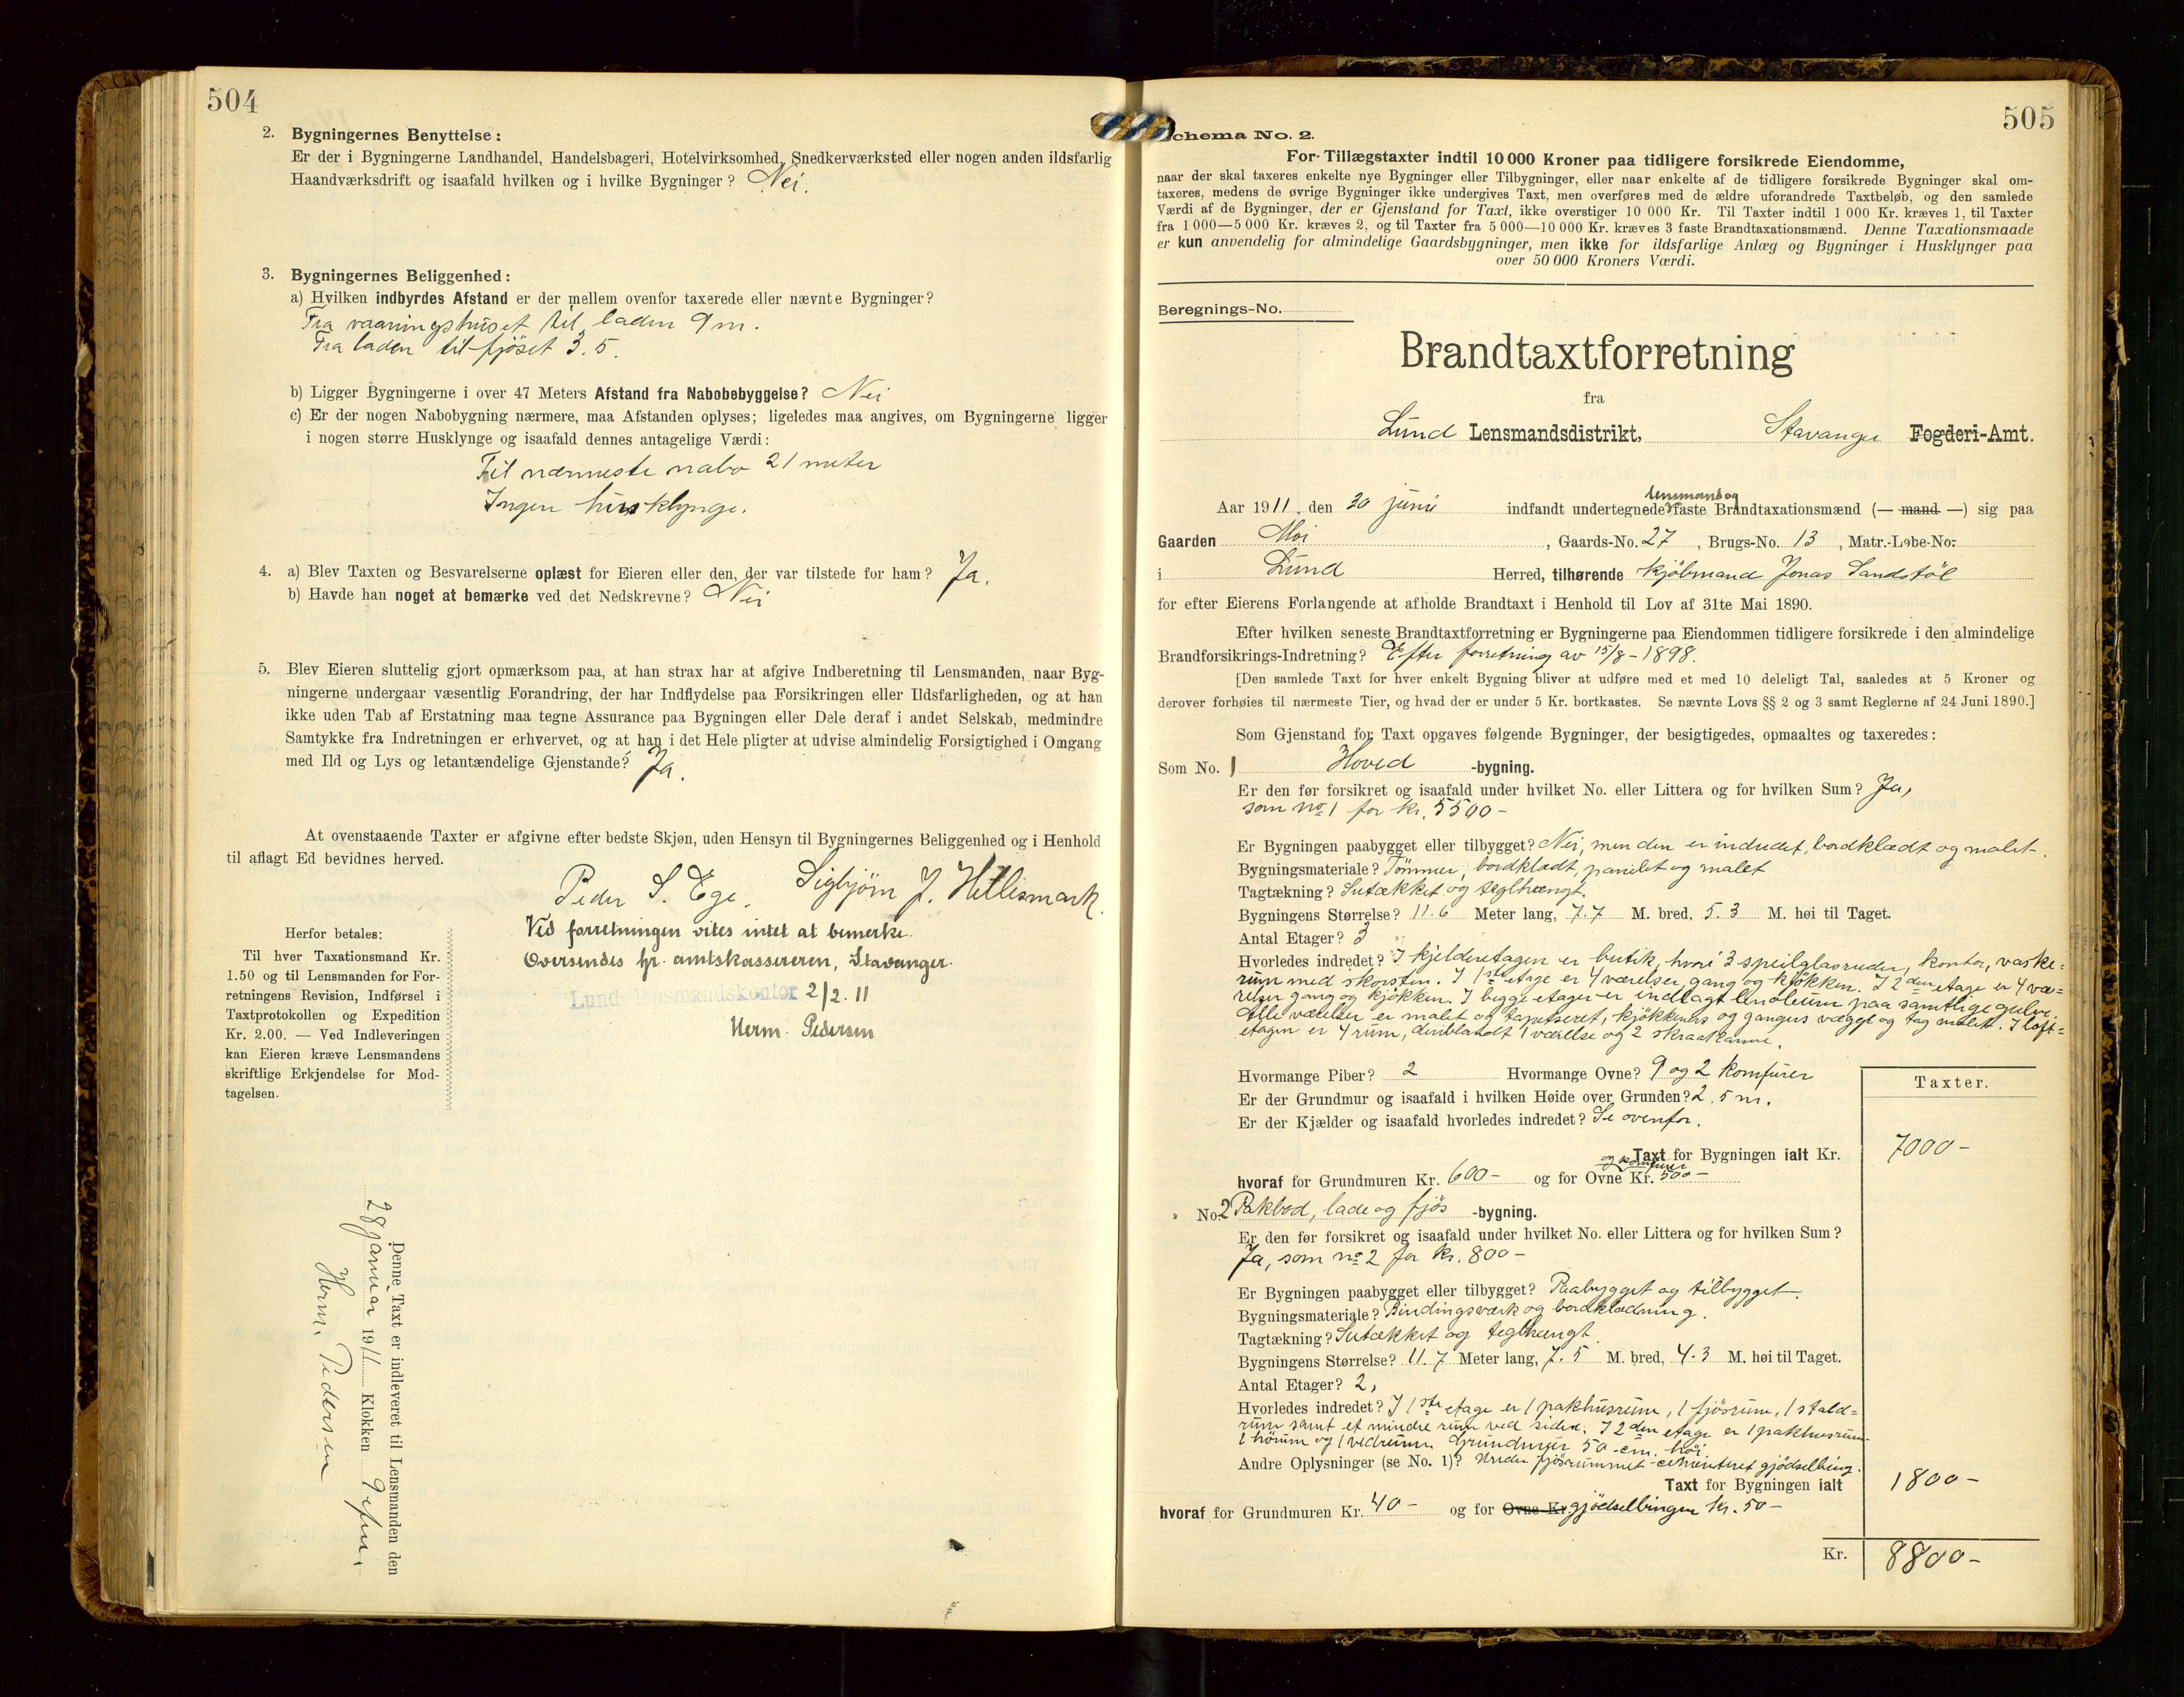 504
2. Bygningernes Benyttelse:
Er der i Bygningerne Landhandel, Handelsbageri, Hotelvirksomhed, Snedkerværksted eller nogen anden ildsfarlig
Haandværksdrift og isaafald hvilken og i hvilke Bygninger? Nei.
3. Bygningernes Beliggenhed:
a) Hvilken indbyrdes Afstand er der mellem ovenfor taxerede eller nævnte Bygninger?
Fra vaaningshuset til laden 9 m.
Fra laden til fjöset 3.5.
b) Ligger Bygningerne i over 47 Meters Afstand fra Nabobebyggelse? Nei
c) Er der nogen Nabobygning nærmere, maa Afstanden oplyses; ligeledes maa angives, om Bygningerne ligger
i nogen større Husklynge og isaafald dennes antagelige Værdi:
Til nærmeste nabo 21 meter
Ingen husklynge.
4. a) Blev Taxten og Besvarelserne oplæst for Eieren eller den, der var tilstede for ham? Ja.
b) Havde han noget at bemærke ved det Nedskrevne? Nei
5. Blev Eieren sluttelig gjort opmærksom paa, at han strax har at afgive Indberetning til Lensmanden, naar Byg-
ningerne undergaar væsentlig Forandring, der har Indflydelse paa Forsikringen eller Ildsfarligheden, og at han
ikke uden Tab af Erstatning maa tegne Assurance paa Bygningen eller Dele deraf i andet Selskab, medmindre
Samtykke fra Indretningen er erhvervet, og at han i det Hele pligter at udvise almindelig Forsigtighed i Omgang
med Ild og Lys og letantændelige Gjenstande? Ja.
At ovenstaaende Taxter er afgivne efter bedste Skjøn, uden Hensyn til Bygningernes Beliggenhed og i Henhold
til aflagt Ed bevidnes herved.
Peder S. Ege. Sigbjørn J. Hetlesmark.
Ved forretningen vites intet at bemerke.
Oversendes hr. amtskassereren, Stavanger.
Lund lensmandskontor 2/2.11
Herm. Pedersen
Herfor betales:
Til hver Taxationsmand Kr.
1.50 og til Lensmanden for For-
retningens Revision, Indførsel i
Taxtprotokollen og Expedition
Kr. 2.00. — Ved Indleveringen
kan Eieren kræve Lensmandens
skriftlige Erkjendelse for Mod-
tagelsen.
Denne Taxt er indleveret til Lensmanden den
28 januar 1911 Klokken 9 efm.
Herm. Pedersen
505
Schema No. 2.
For Tillægstaxter indtil 10 000 Kroner paa tidligere forsikrede Eiendomme,
naar der skal taxeres enkelte nye Bygninger eller Tilbygninger, eller naar enkelte af de tidligere forsikrede Bygninger skal om-
taxeres, medens de øvrige Bygninger ikke undergives Taxt, men overføres med de ældre uforandrede Taxtbeløb, og den samlede
Værdi af de Bygninger, der er Gjenstand for Taxt, ikke overstiger 10 000 Kr. Til Taxter indtil 1 000 Kr. kræves 1, til Taxter
fra 1 000—5 000 Kr. kræves 2, og til Taxter fra 5 000—10 000 Kr. kræves 3 faste Brandtaxationsmænd. Denne Taxationsmaade
er kun anvendelig for almindelige Gaardsbygninger, men ikke for ildsfarlige Anlæg og Bygninger i Husklynger paa
over 50 000 Kroners Værdi.
Beregnings-No.
Brandtaxtforretning
fra
Lund Lensmandsdistrikt, Stavanger Fogderi-Amt.
lensmand og
Aar 1911, den 30 juni indfandt undertegnede faste Brandtaxationsmænd (— mand —) sig paa
Gaarden Moi, Gaards-No. 27, Brugs-No. 13, Matr.-Løbe-No.
i Lund Herred, tilhørende kjöbmand Jonas Sandstöl
for efter Eierens Forlangende at afholde Brandtaxt i Henhold til Lov af 31te Mai 1890.
Efter hvilken seneste Brandtaxtforretning er Bygningerne paa Eiendommen tidligere forsikrede i den almindelige
Brandforsikrings-Indretning? Efter forretning av 15/8 - 1898.
[Den samlede Taxt for hver enkelt Bygning bliver at udføre med et med 10 deleligt Tal, saaledes at 5 Kroner og
derover forhøies til nærmeste Tier, og hvad der er under 5 Kr. bortkastes. Se nævnte Lovs §§ 2 og 3 samt Reglerne af 24 Juni 1890.]
Som Gjenstand for Taxt opgaves følgende Bygninger, der besigtigedes, opmaaltes og taxeredes:
Som No. 1 Hoved -bygning.
Er den før forsikret og isaafald under hvilket No. eller Littera og for hvilken Sum? Ja,
som no 1 for kr. 5500 -
Er Bygningen paabygget eller tilbygget? Nei, men den er indredet, bordklædt og malet.
Bygningsmateriale? Tömmer, bordklædt, panelet og malet
Tagtækning? Sutækket og teglhængt.
Bygningens Størrelse? 11.6 Meter lang, 7.7 M. bred, 5.3 M. høi til Taget.
Antal Etager? 3
Hvorledes indredet? I kjelderetagen er butik, hvori 3 speilglasruder, kontor, vaske-
rum med skorsten. I 1ste etage er 4 værelser, gang og kjökken. I 2den etage er 4 væ=
relser gang og kjökken. I begge etager er indlagt linoleum paa samtlige gulve.
Alle værelser er malet og tapetseret, kjökkeners og gangers vægge og tag malet. I loft=
etagen er 4 rum, deriblandt 1 værelse og 2 skraakamre.
Hvormange Piber? 2 Hvormange Ovne? 9 og 2 komfurer
Er der Grundmur og isaafald i hvilken Høide over Grunden? 2.5 m.
Er der Kjælder og isaafald hvorledes indredet? Se ovenfor.
Taxter.
Taxt for Bygningen ialt Kr. 7000 -
og komfurer
hvoraf for Grundmuren Kr. 600 - og for Ovne Kr. 500 -
" No. 2 Pakbod, lade og fjös -bygning.
Er den før forsikret og isaafald under hvilket No. eller Littera og for hvilken Sum?
Ja, som no 2 for kr. 800 -
Er Bygningen paabygget eller tilbygget? Paabygget og tilbygget.
Bygningsmateriale? Bindingsværk og bordklædning.
Tagtækning? Sutækket og teglhængt.
Bygningens Størrelse? 11.7 Meter lang, 7.5 M. bred, 4.3 M. høi til Taget.
Antal Etager? 2,
Hvorledes indredet? I 1ste etage er 1 pakhusrum, 1 fjösrum, 1 stald=
rum samt et mindre rum ved siden. I 2den etage er 1 pakhusrum
1 hörum og 1 vedrum. Grundmur 50 cm. höi.
Andre Oplysninger (se No. 1)? Under fjösrummet cementeret gjödselbing.
Taxt for Bygningen ialt 1800 -
hvoraf for Grundmuren Kr. 40 - og for Ovne Kr. gjödselbingen kr. 50 -
Kr. 8800 -